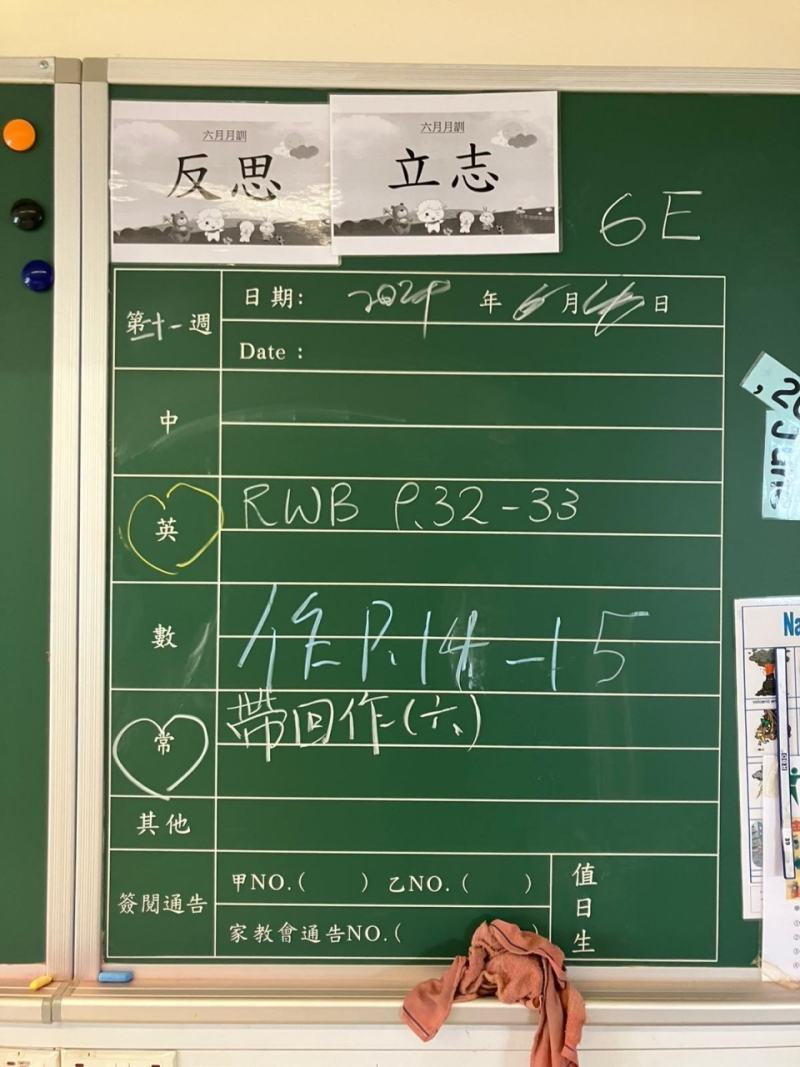 六月月訓
反思
六月月訓
立志
6E
第二十一週
日期: 2024 年 6 月 日
Date :
中
英
RWB P.32-33
數
作P.14-15
常
帶回作(六)
其他
簽閱通告
甲NO.( ) 乙NO.( )
家教會通告NO.( )
值日生
, 20
Jun
Na